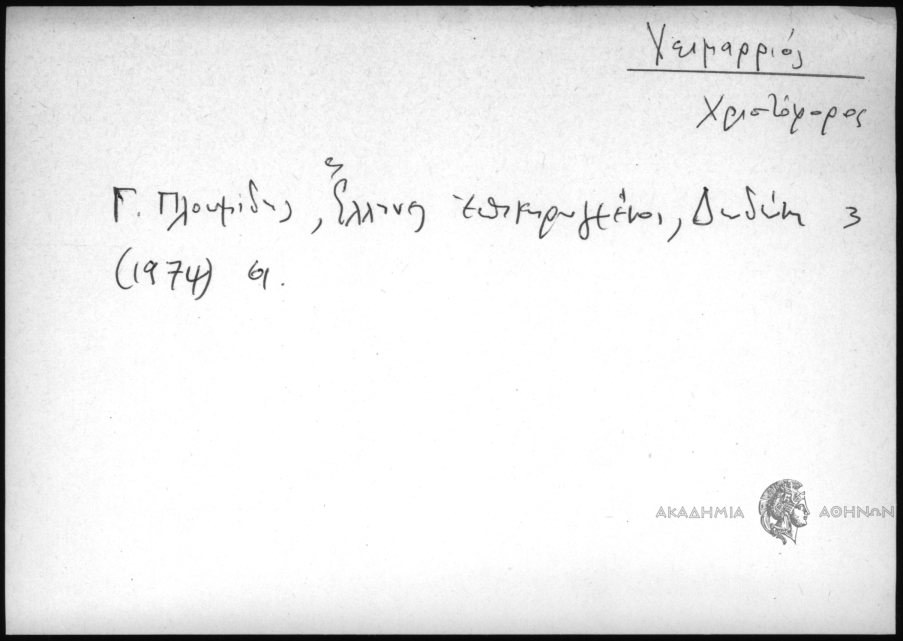 Χειμαρριός
Χριστόφορος
Γ. Πλουμίδης, Ἕλληνες ἐπικηρυγμένοι, Δωδώνη 3
(1974) 61.
ΑΚΑΔΗΜΙΑ ΑΘΗΝΩΝ